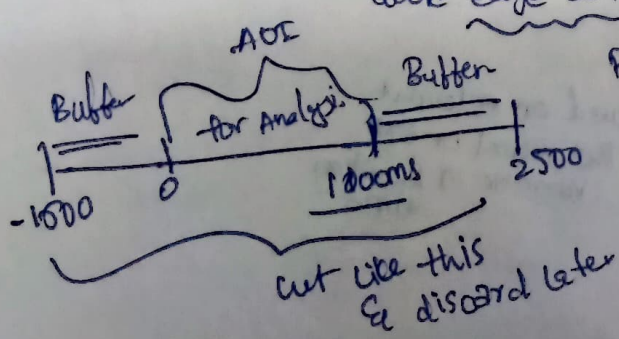 AOI
Buffer
Buffer
for Analysis
-1500
0
1000ms
2500
cut like this
& discard later